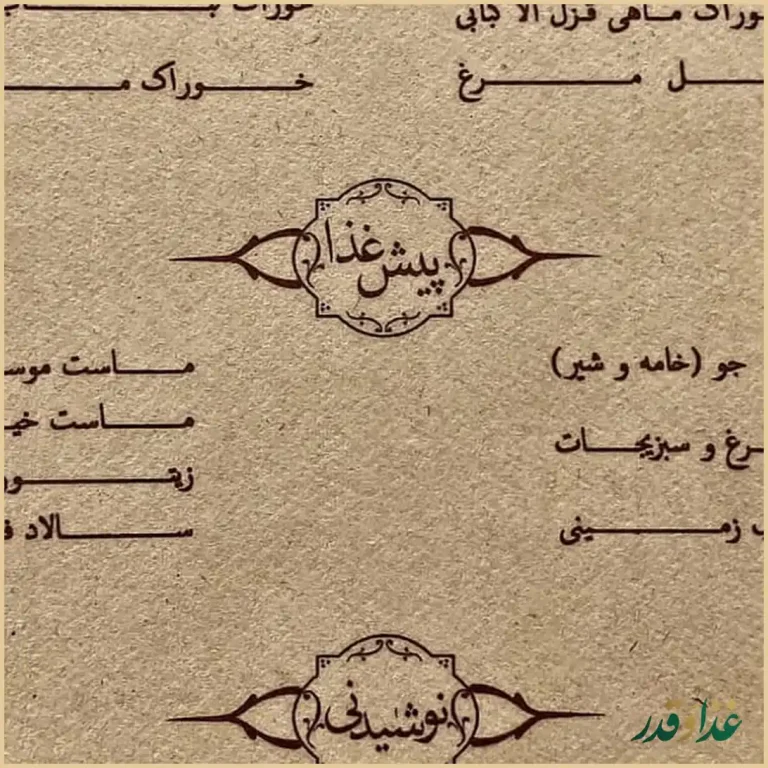 خوراک ماهی قزل آلا کبابی
خوراک
ل مرغ
خوراک مـ
پیش غذا
جو (خامه و شیر)
ماست موسـ
رغ و سبزیجات
ماست خیـ
زمینی
زیتو
سالاد
نوشیدنی
غذا و قدر